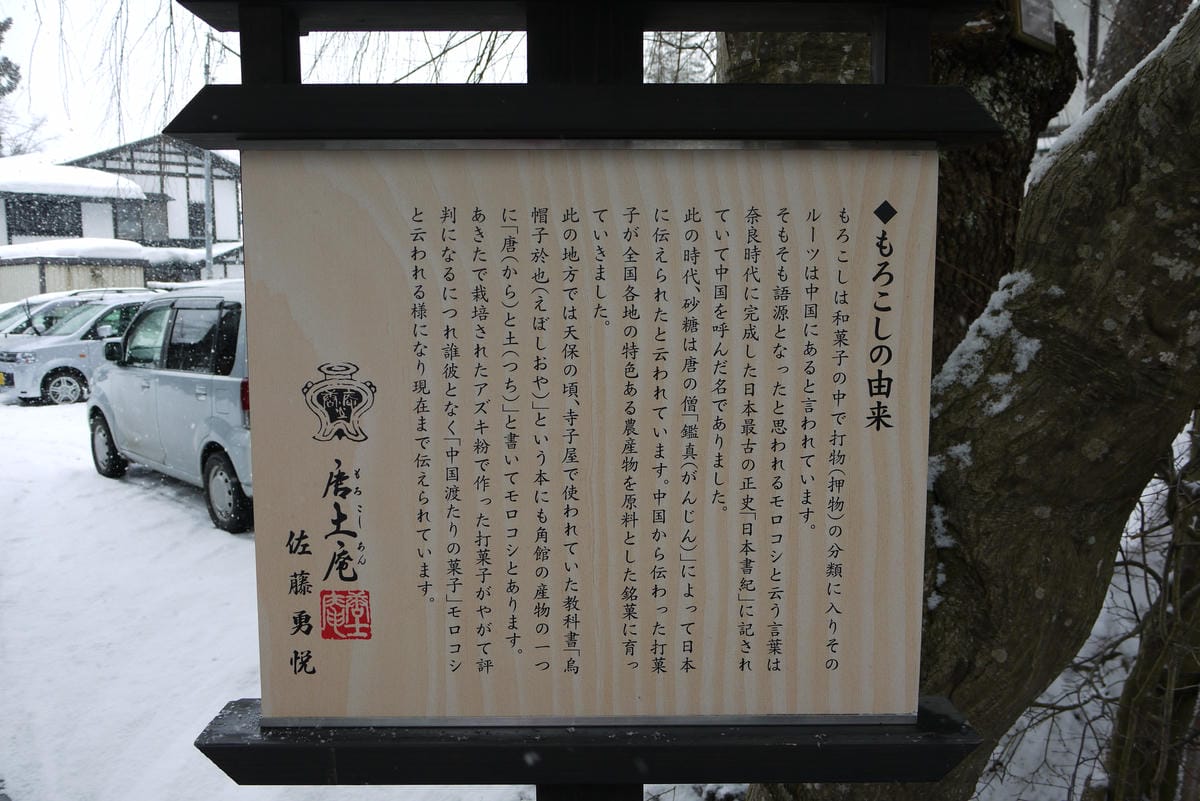 ◆もろこしの由来
もろこしは和菓子の中で打物(押物)の分類に入りその
ルーツは中国にあると言われています。
そもそも語源となったと思われるモロコシと云う言葉は
奈良時代に完成した日本最古の正史「日本書紀」に記され
ていて中国を呼んだ名でありました。
此の時代、砂糖は唐の僧「鑑真(がんじん)」によって日本
に伝えられたと云われています。中国から伝わった打菓
子が全国各地の特色ある農産物を原料とした銘菓に育っ
ていきました。
此の地方では天保の頃、寺子屋で使われていた教科書「烏
帽子於也(えぼしおや)」という本にも角館の産物の一つ
に「唐(から)と土(つち)」と書いてモロコシとあります。
あきたで栽培されたアズキ粉で作った打菓子がやがて評
判になるにつれ誰彼となく「中国渡たりの菓子」モロコシ
と云われる様になり現在まで伝えられています。
唐土庵
もろこしあん
佐藤勇悦